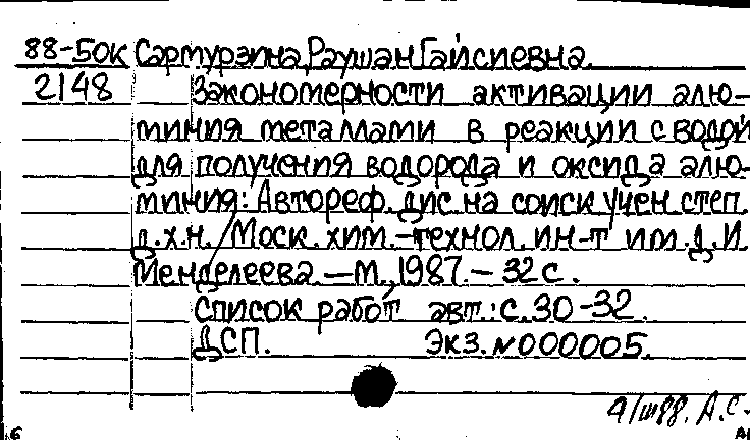 88-50к Сармурзина, Раушан Гайсиевна.
2148 Закономерности активации алю-
миния металлами в реакции с водой
для получения водорода и оксида алю-
миния: Автореф. дис. на соиск. учен. степ.
д.х.н. / Моск. хим.-технол. ин-т им. Д. И.
Менделеева. — М., 1987. – 32 с.
Список работ авт.: с. 30-32.
ДСП. Экз. № 000005.
88. А.С.
6